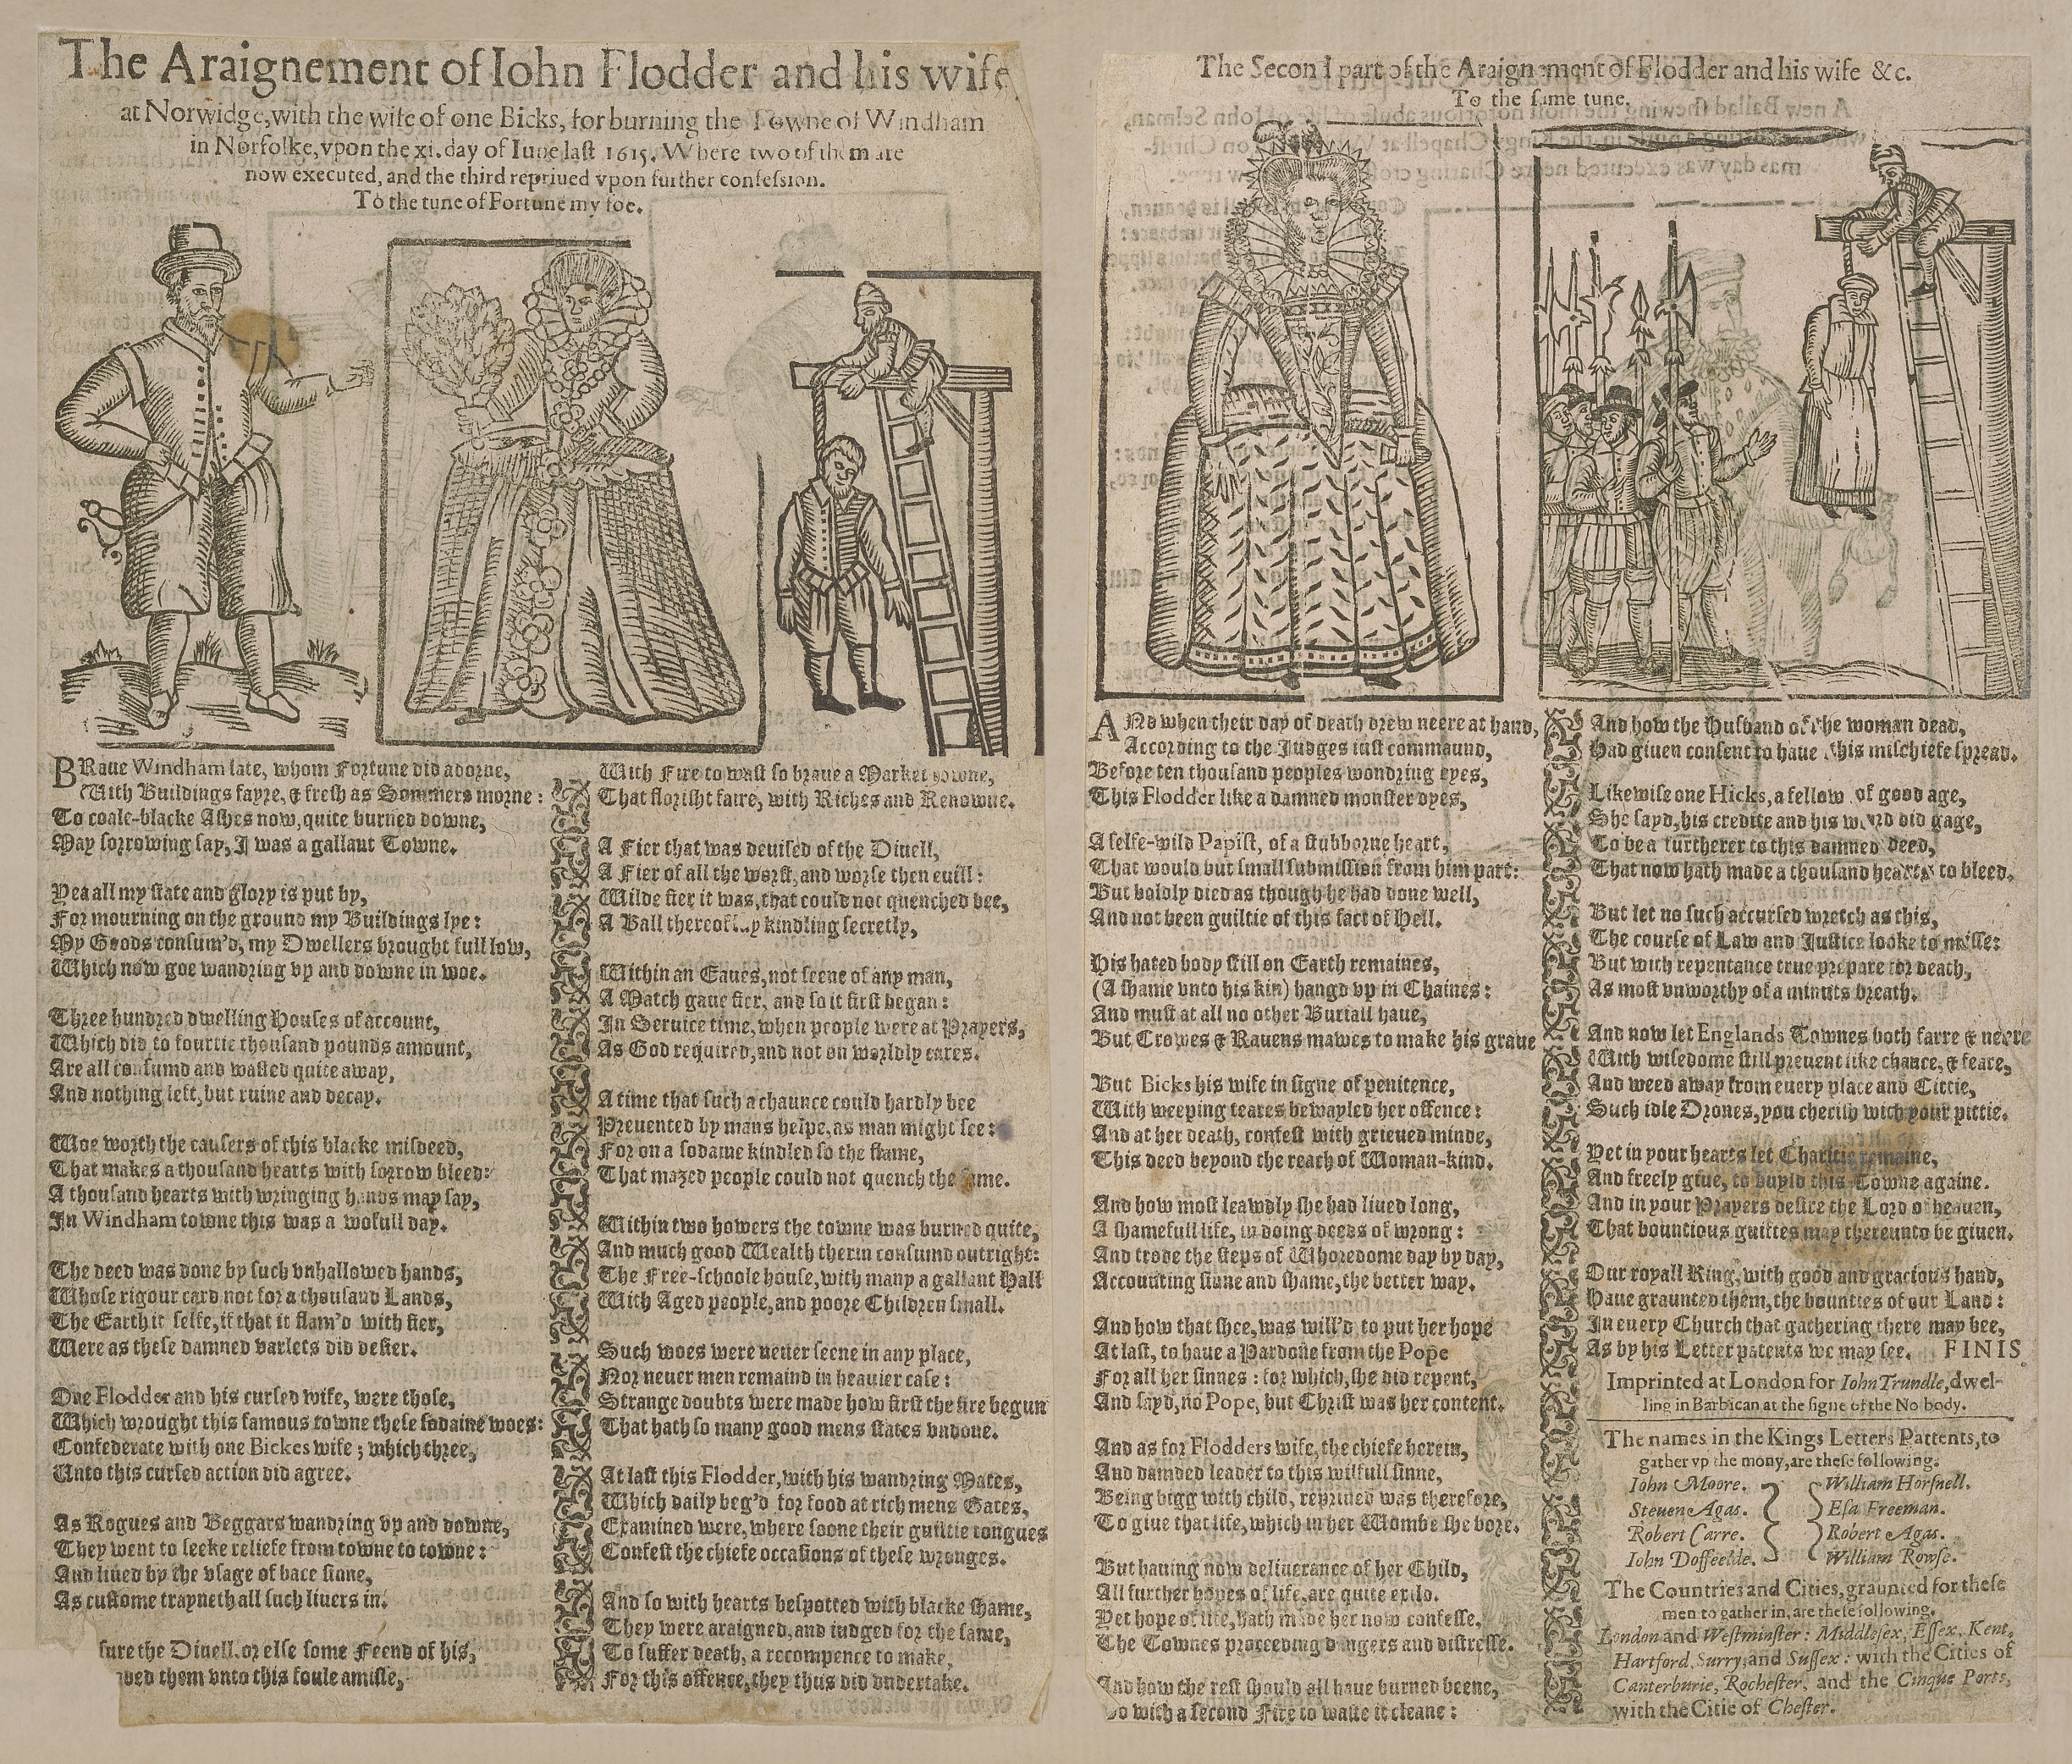 The Araignement of Iohn Flodder and his wife
at Norwidge, with the wife of one Bicks, for burning the Towne of Windham
in Norfolke, vpon the xi. day of Iune last 1615. Where two of them are
now executed, and the third repriued vpon further confession.
To the tune of Fortune my foe.
BRaue Windham late, whom Fortune did adorne,
With Buildings fayre, & fresh as Sommers morne:
To coale-blacke Ashes now, quite burned downe,
May sorrowing say, I was a gallant Towne.
Yea all my state and glory is put by,
For mourning on the ground my Buildings lye:
My Goods consum'd, my Dwellers brought full low,
Which now goe wandring vp and downe in woe.
Three hundred dwelling Houses of account,
Which did to fourtie thousand pounds amount,
Are all consumd and wasted quite away,
And nothing left, but ruine and decay.
Woe worth the causers of this blacke misdeed,
That makes a thousand hearts with sorrow bleed:
A thousand hearts with wringing hands may say,
In Windham towne this was a wofull day.
The deed was done by such vnhallowed hands,
Whose rigour card not for a thousand Lands,
The Earth it selfe, if that it flam'd with fier,
Were as these damned varlets did desier.
One Flodder and his cursed wife, were those,
Which wrought this famous towne these sodaine woes:
Confederate with one Bickes wife; which three,
Unto this cursed action did agree.
As Rogues and Beggars wandring vp and downe,
They went to seeke reliefe from towne to towne:
And liued by the vsage of bace sinne,
As custome trayneth all such liuers in.
sure the Diuell, or else some Feend of his,
them vnto this foule amisse,
With Fire to wast so braue a Market towne,
That florisht faire, with Riches and Renowne.
A Fier that was deuised of the Diuell,
A Fier of all the worst, and worse then euill:
Wilde fier it was, that could not quenched bee,
A Ball thereof kindling secretly,
Within an Eaues, not seene of any man,
A Match gaue fier, and so it first began:
In Seruice time, when people were at Prayers,
As God required, and not on worldly cares.
A time that such a chaunce could hardly bee
Preuented by mans helpe, as man might see:
For on a sodaine kindled so the flame,
That mazed people could not quench the same.
Within two howers the towne was burned quite,
And much good Wealth therin consumd outright:
The Free-schoole house, with many a gallant Hall
With Aged people, and poore Children small.
Such woes were neuer seene in any place,
Nor neuer men remaind in heauier case:
Strange doubts were made how first the fire begun
That hath so many good mens states vndone.
At last this Flodder, with his wandring Mates,
Which daily beg'd for food at rich mens Gates,
Examined were, where soone their guiltie tongues
Confest the chiefe occasions of these wronges.
And so with hearts bespotted with blacke shame,
They were araigned, and iudged for the same,
To suffer death, a recompence to make,
For this offence, they thus did vndertake.
The Second part of the Araignement of Flodder and his wife &c.
To the same tune.
ANd when their day of death drew neere at hand,
According to the Judges iust command,
Before ten thousand peoples wondring eyes,
This Flodder like a damned monster dyes,
A selfe-wild Papist, of a stubborne heart,
That would but small submission from him part:
But boldly died as though he had done well,
And not been guiltie of this fact of Hell.
His hated body still on Earth remaines,
(A shame vnto his kin) hangd vp in Chaines:
And must at all no other Buriall haue,
But Crowes & Rauens mawes to make his graue
But Bicks his wife in signe of penitence,
With weeping teares bewayled her offence:
And at her death, confest with grieued minde,
This deed beyond the reach of Woman-kind.
And how most leawdly she had liued long,
A shamefull life, in doing deeds of wrong:
And trode the steps of Whoredome day by day,
Accounting sinne and shame, the better way.
And how that shee, was will'd to put her hope
At last, to haue a Pardone from the Pope
For all her sinnes: for which, she did repent,
And sayd, no Pope, but Christ was her content.
And as for Flodders wife, the chiefe herein,
And damded leader to this wilfull sinne,
Being bigg with child, repriued was therefore,
To giue that life, which in her Wombe she bore.
But hauing now deliuerance of her Child,
All further hopes of life, are quite exild.
Yet hope of life, hath made her now confesse,
The Townes proceeding dangers and distresse.
And how the rest should all haue burned beene,
So with a second Fire to waste it cleane:
And how the Husband of the woman dead,
Had giuen consent to haue this mischiefe spread.
Likewise one Hicks, a fellow of good age,
She sayd, his credite and his word did gage,
To be a furtherer to this damned deed,
That now hath made a thousand hearts to bleed.
But let no such accursed wretch as this,
The course of Law and Justice looke to misse:
But with repentance true prepare for death,
As most vnworthy of a minuts breath.
And now let Englands Townes both farre & neere
With wisedome still preuent like chance, & feare,
And weed away from euery place and Cittie,
Such idle Drones, you cherish with your pittie.
Yet in your hearts let Charitie remaine,
And freely giue, to buyld this Towne againe.
And in your Prayers desire the Lord of heauen,
That bountious guiftes may thereunto be giuen.
Our royall King, with good and gracious hand,
Haue graunted them, the bounties of our Land:
In euery Church that gathering there may bee,
As by his Letter patents we may see. FINIS.
Imprinted at London for Iohn Trundle, dwel-
ling in Barbican at the signe of the No body.
The names in the Kings Letters Pattents, to
gather vp the mony, are these following.
Iohn Moore. William Horsnell.
Steuen Agas. Esa Freeman.
Robert Carre. Robert Agas.
Iohn Doffeelde. William Rowse.
The Countries and Cities, graunted for these
men to gather in, are these following.
London and Westminster: Middlesex, Essex, Kent,
Hartford, Surry, and Sussex: with the Cities of
Canterburie, Rochester, and the Cinque Ports,
with the Citie of Chester.